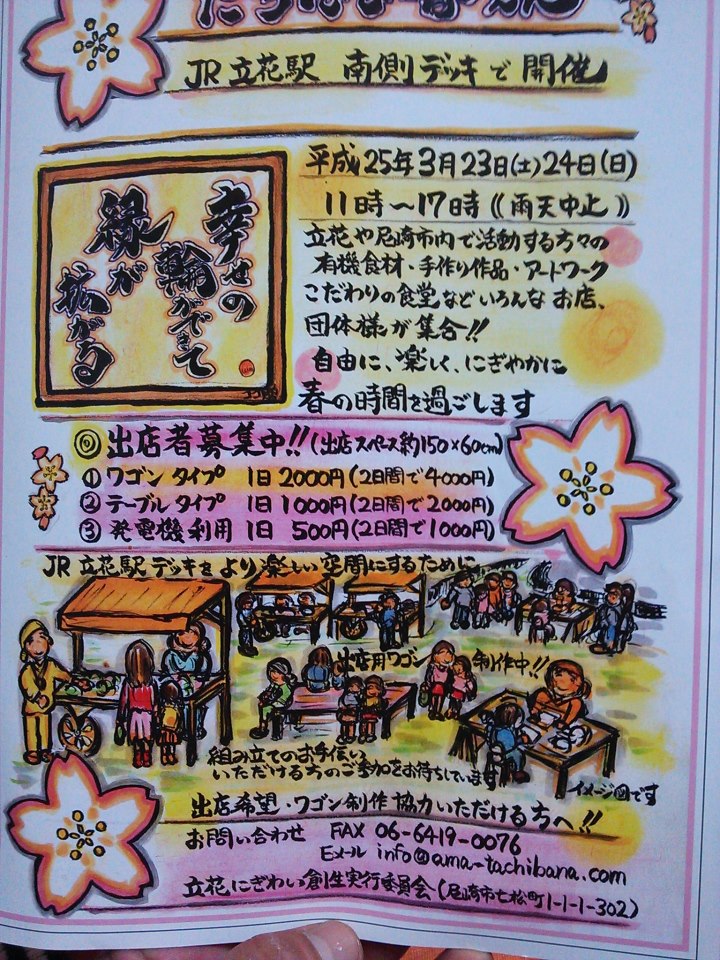 JR立花駅 南側デッキで開催
平成25年3月23日(土)24日(日)
11時～17時《雨天中止》
幸せの
輪ができて
縁が
拡がる
立花や尼崎市内で活動する方々の
有機食材・手作り作品・アートワーク
こだわりの食堂などいろんなお店、
団体様が集合!!
自由に、楽しく、にぎやかに
春の時間を過ごします
◎出店者募集中!!(出店スペース約150×60cm)
①ワゴンタイプ 1日2000円(2日間で4000円)
②テーブルタイプ 1日1000円(2日間で2000円)
③発電機利用 1日 500円(2日間で1000円)
JR立花駅デッキをより楽しい空間にするために
出店用ワゴン 制作中!!
組み立てのお手伝い
いただける方のご参加をお待ちしています
イメージ図です
出店希望・ワゴン制作協力いただける方へ!!
お問い合わせ FAX 06-6419-0076
Eメール info@ama-tachibana.com
立花にぎわい創生実行委員会(尼崎市七松町1-1-1-302)